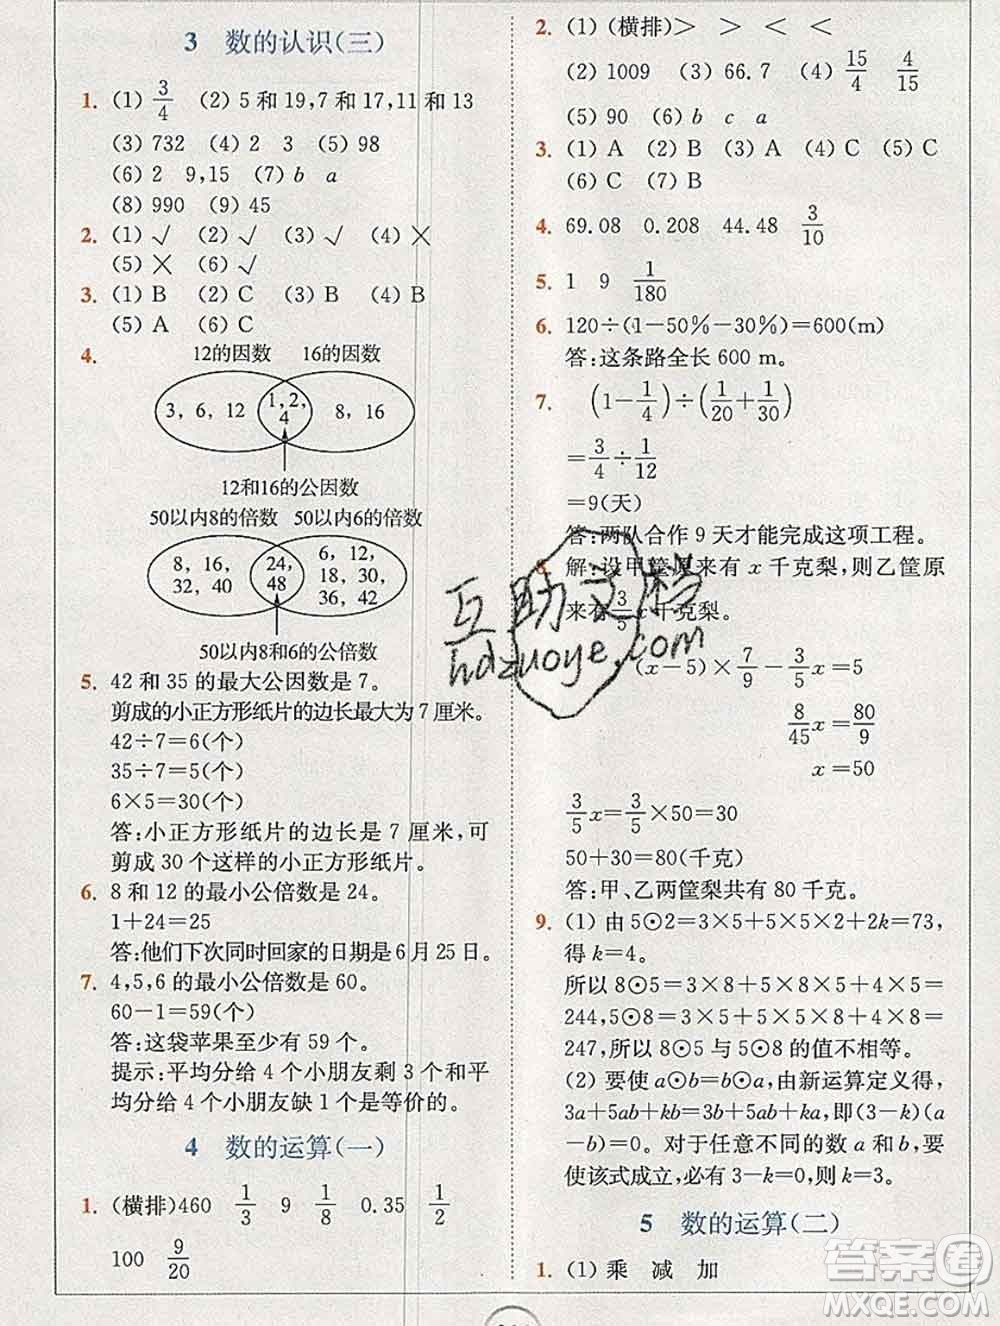 3 数的认识(三)
1. (1) 3/4 (2) 5 和 19,7 和 17,11 和 13
(3) 732 (4) 2 3 (5) 98
(6) 2 9,15 (7) b a
(8) 990 (9) 45
2. (1) √ (2) √ (3) √ (4) ×
(5) × (6) √
3. (1) B (2) C (3) B (4) B
(5) A (6) C
4.
12的因数 16的因数
3, 6, 12 1, 2, 4 8, 16
12和16的公因数
50以内8的倍数 50以内6的倍数
8, 16, 32, 40 24, 48 6, 12, 18, 30, 36, 42
50以内8和6的公倍数
5. 42 和 35 的最大公因数是 7。
剪成的小正方形纸片的边长最大为 7 厘米。
42÷7=6(个)
35÷7=5(个)
6×5=30(个)
答:小正方形纸片的边长是 7 厘米,可
剪成 30 个这样的小正方形纸片。
6. 8 和 12 的最小公倍数是 24。
1+24=25
答:他们下次同时回家的日期是 6 月 25 日。
7. 4,5,6 的最小公倍数是 60。
60-1=59(个)
答:这袋苹果至少有 59 个。
提示:平均分给 4 个小朋友剩 3 个和平
均分给 4 个小朋友缺 1 个是等价的。
4 数的运算(一)
1. (横排)460 1/3 9 1/8 0.35 1/2
100 9/20
2. (1) (横排)> > < <
(2) 1009 (3) 66.7 (4) 15/4 4/15
(5) 90 (6) b c a
3. (1) A (2) B (3) A (4) C (5) C
(6) C (7) B
4. 69.08 0.208 44.48 3/10
5. 1 9 1/180
6. 120÷(1-50%-30%)=600(m)
答:这条路全长 600 m。
7. (1-1/4)÷(1/20+1/30)
=3/4÷1/12
=9(天)
答:两队合作 9 天才能完成这项工程。
8. 解:设甲筐原来有 x 千克梨,则乙筐原
来有3/5x千克梨。
(x-5)×7/9-3/5x=5
8/45x=80/9
x=50
3/5x=3/5×50=30
50+30=80(千克)
答:甲、乙两筐梨共有 80 千克。
9. (1) 由 5⊙2=3×5+5×5×2+2k=73,
得 k=4。
所以 8⊙5=3×8+5×8×5+4×5=
244,5⊙8=3×5+5×5×8+4×8=
247,所以 8⊙5 与 5⊙8 的值不相等。
(2) 要使 a⊙b=b⊙a,由新运算定义得
3a+5ab+kb=3b+5ab+ka,即(3-k)(a
-b)=0。对于任意不同的数 a 和 b,要
使该式成立,必有 3-k=0,则 k=3。
5 数的运算(二)
1. (1) 乘 减 加
互助文档
hdzuoye.com
答案圈
MXQE.COM